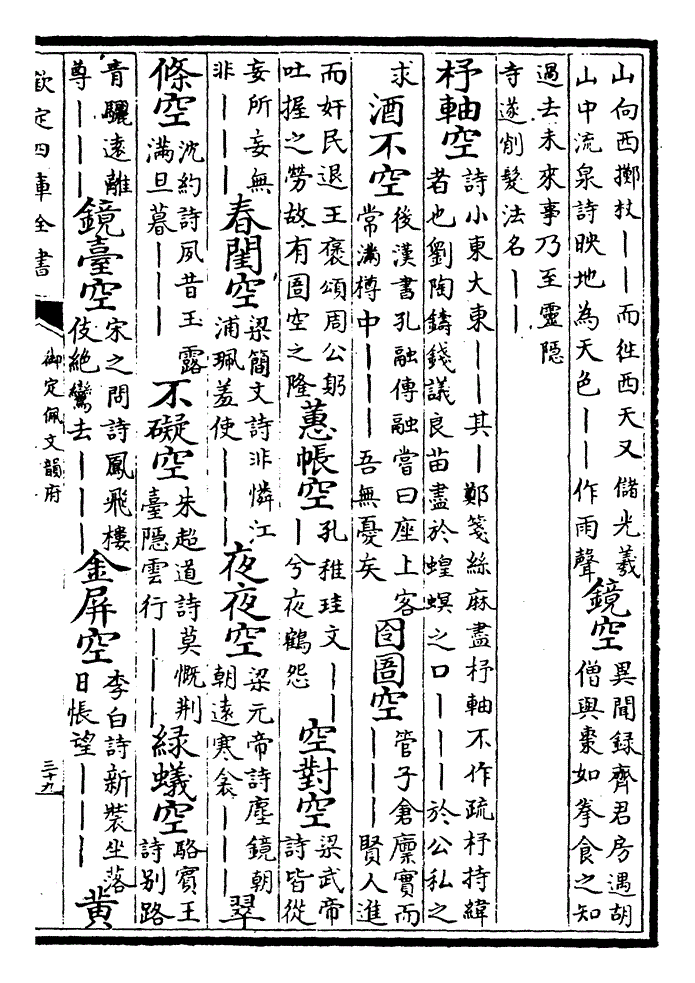 山向西擲杖――而徃西天又儲光羲
山中流泉詩映地為天色――作雨聲
鏡空
異聞録齊君房遇胡
僧與棗如拳食之知
過去未來事乃至靈隠
寺遂削髮法名――
杼軸空
詩小東大東――其―鄭箋絲麻盡杼軸不作疏杼持緯
者也劉陶鑄錢議良苗盡於蝗螟之口―――於公私之
求
酒不空
後漢書孔融傳融嘗曰座上客
常滿樽中―――吾無憂矣
囹圄空
管子倉廩實而
―――賢人進
而奸民退王褒頌周公躬
吐握之勞故有圄空之隆
蕙帳空
孔稚珪文――
―兮夜鶴怨
空對空
梁武帝
詩皆從
妄所妄無
非―――
春閨空
梁簡文詩非憐江
浦珮羞使―――
夜夜空
梁元帝詩塵鏡朝
朝遠寒衾―――
翠
條空
沈約詩夙昔玉露
滿旦暮―――
不礙空
朱超道詩莫慨荆
臺隠雲行―――
緑蟻空
駱賓王
詩别路
青驪遠離
尊―――
鏡臺空
宋之問詩鳳飛樓
伎絶鸞去―――
金屏空
李白詩新裝坐落
日悵望―――
黄
欽定四庫全書
御定佩文韻府
三十九